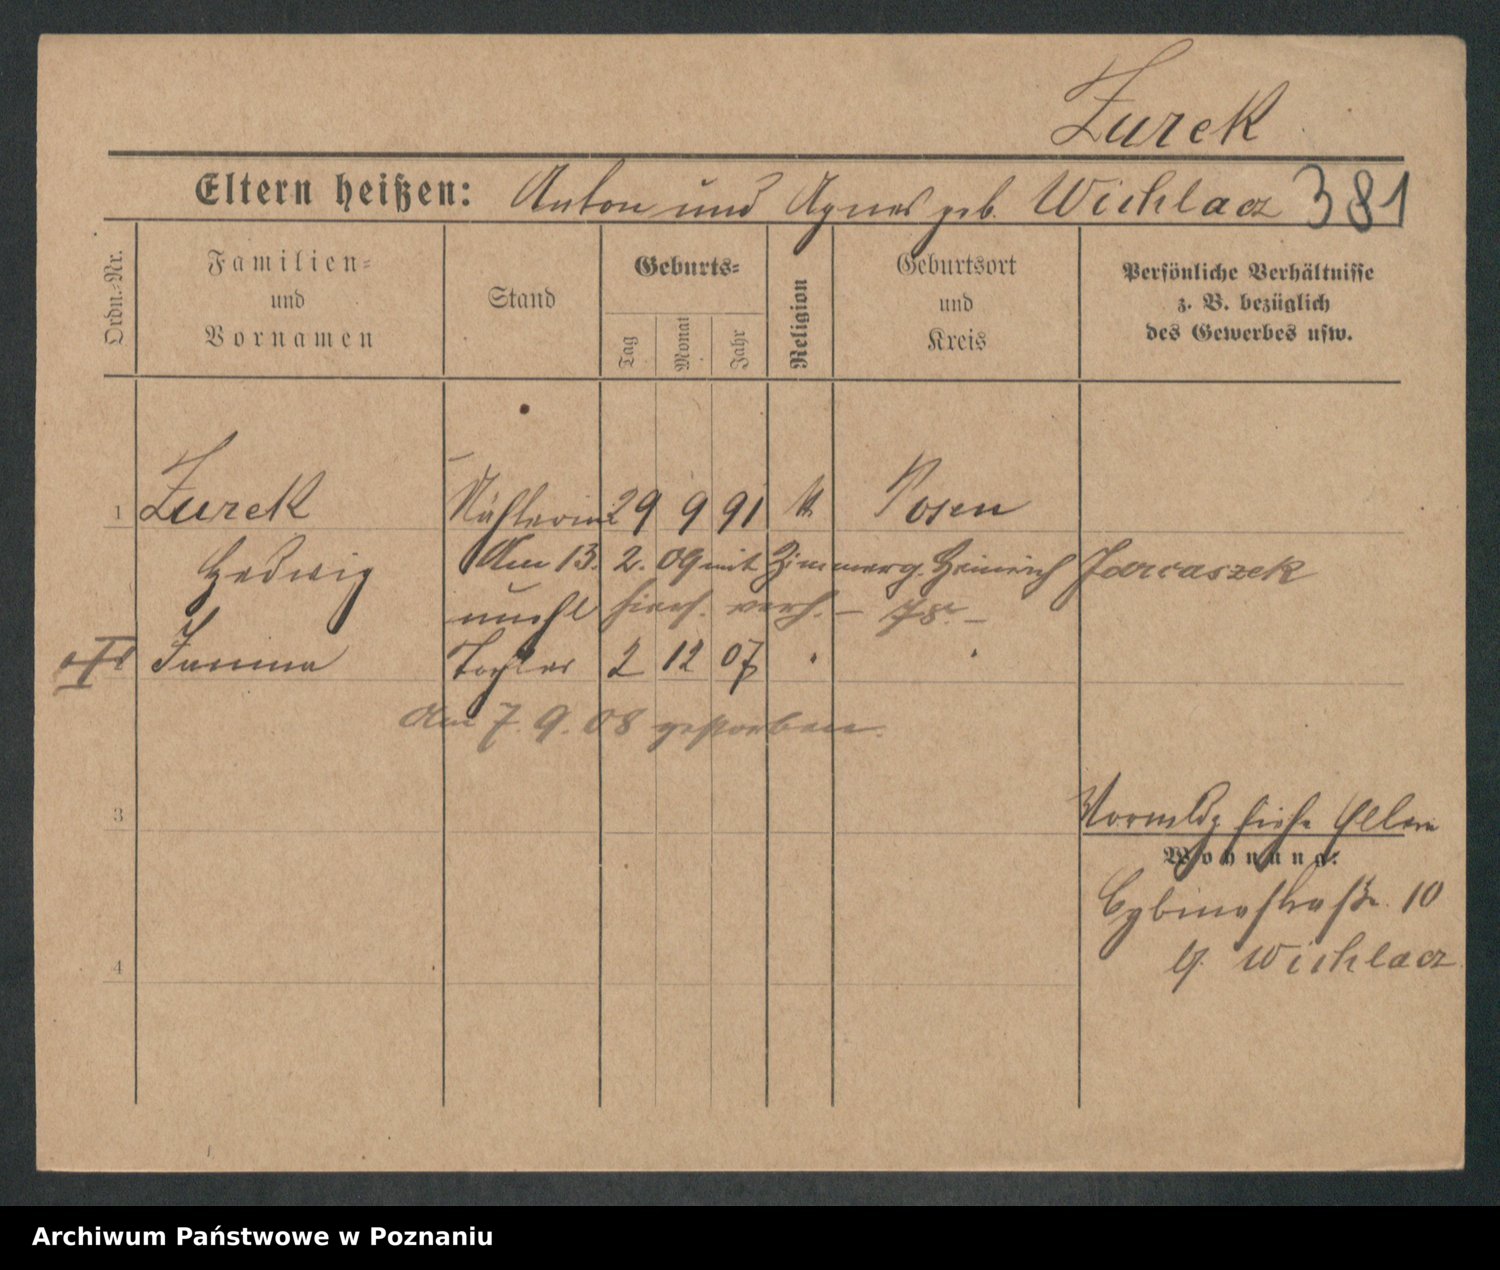 Zurek
Eltern heißen: Anton und Agnes geb. Wichlacz 381
Ordn.-Nr.
Familien- und Vornamen
Stand
Geburts-
Tag
Monat
Jahr
Religion
Geburtsort und Kreis
Persönliche Verhältnisse
z. B. bezüglich
des Gewerbes usw.
1 Zurek Nähterin 29 9 91 k Posen
Hedwig Am 13. 2. 09 mit Zimmerg. Heinrich Jarcaszek
unehl hies. verh. –
Janina Tochter 2 12 07 " "
Am 7. 9. 08 gestorben.
3
siehe Eltern
Wohnung:
Cybinastraße 10
b. Wichlacz
4
Archiwum Państwowe w Poznaniu